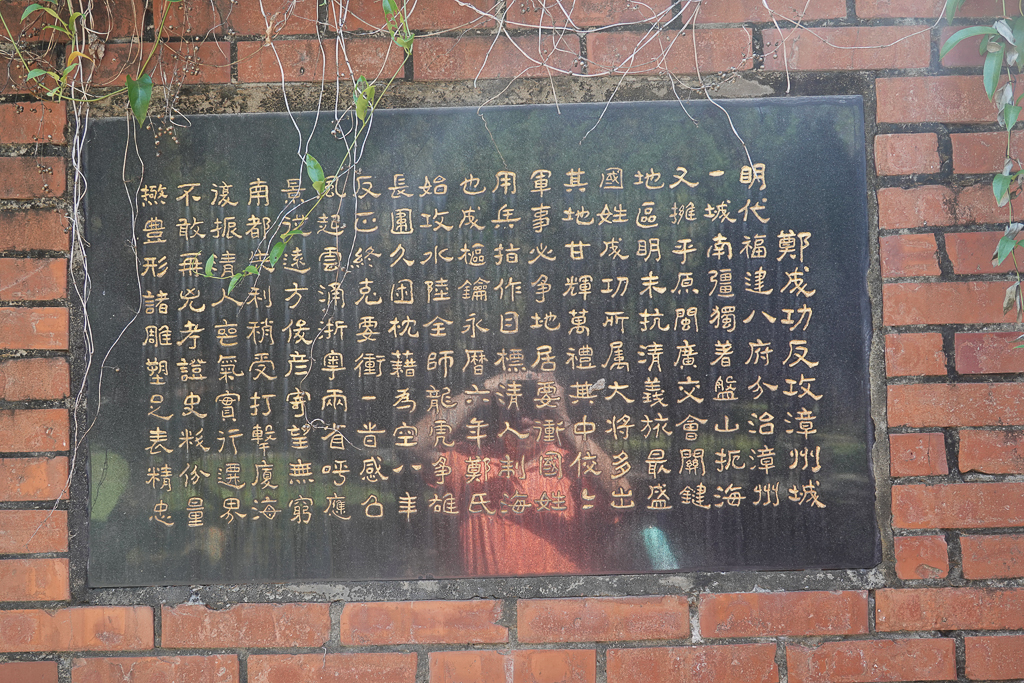 鄭成功反攻漳州城
明代福建八府分治漳州
一城南彊獨著盤山扼海
又擁平原閩廣交會關鍵
地區明末抗清義旅最盛
國姓成功所属大將多出
其地甘輝萬禮其中佼〻
軍事必争地居要衝國姓
用兵指作目標清人制海
也成樞鑰永曆六年鄭氏
始攻水陸全師龍虎争雄
長圍久困枕藉為空八年
反正終克要衝一昔感召
風起雲涌浙粵兩省呼應
景從遠方俊彥寄望無窮
南都失利稍受打擊廈海
復振清人喪氣實行遷界
不敢再兇考證史料份量
豊形諸雕塑足表精忠